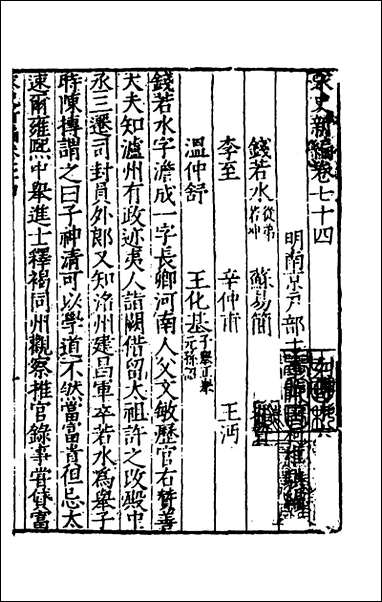 宋史新編卷七十四
明南京戶部主柯維騏編
錢若水從弟若冲 蘇易簡
李至 辛仲甫 王沔
溫仲舒 王化基子舉正舉元孫詔
錢若水字澹成一字長卿河南人父文敏歷官右贊善
大夫知瀘州有政迹夷人詣闕借留太祖許之改殿中
丞三遷司封員外郎又知洺州建昌軍卒若水為舉子
時陳摶謂之曰子神清可以學道不然當富貴但忌太
速爾雍熙中舉進士釋褐同州觀察推官錄事嘗貸富